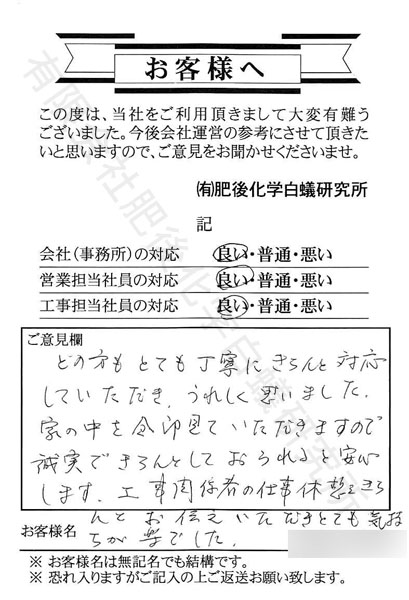 お客様へ
この度は、当社をご利用頂きまして大変有難う
ございました。今後会社運営の参考にさせて頂きた
いと思いますので、ご意見をお聞かせくださいませ。
㈲肥後化学白蟻研究所
記
会社（事務所）の対応 良い・普通・悪い
営業担当社員の対応 良い・普通・悪い
工事担当社員の対応 良い・普通・悪い
ご意見欄
どの方もとても丁寧にきちんと対応
していただき、うれしく思いました。
家の中を全部見ていただきますので
誠実できちんとしておられると安心
します。工事関係者の仕事休憩もきち
んとお伝えいただきとても気持
ちが楽でした。
お客様名
※ お客様名は無記名でも結構です。
※ 恐れ入りますがご記入の上ご返送お願い致します。
有限会社肥後化学白蟻研究所